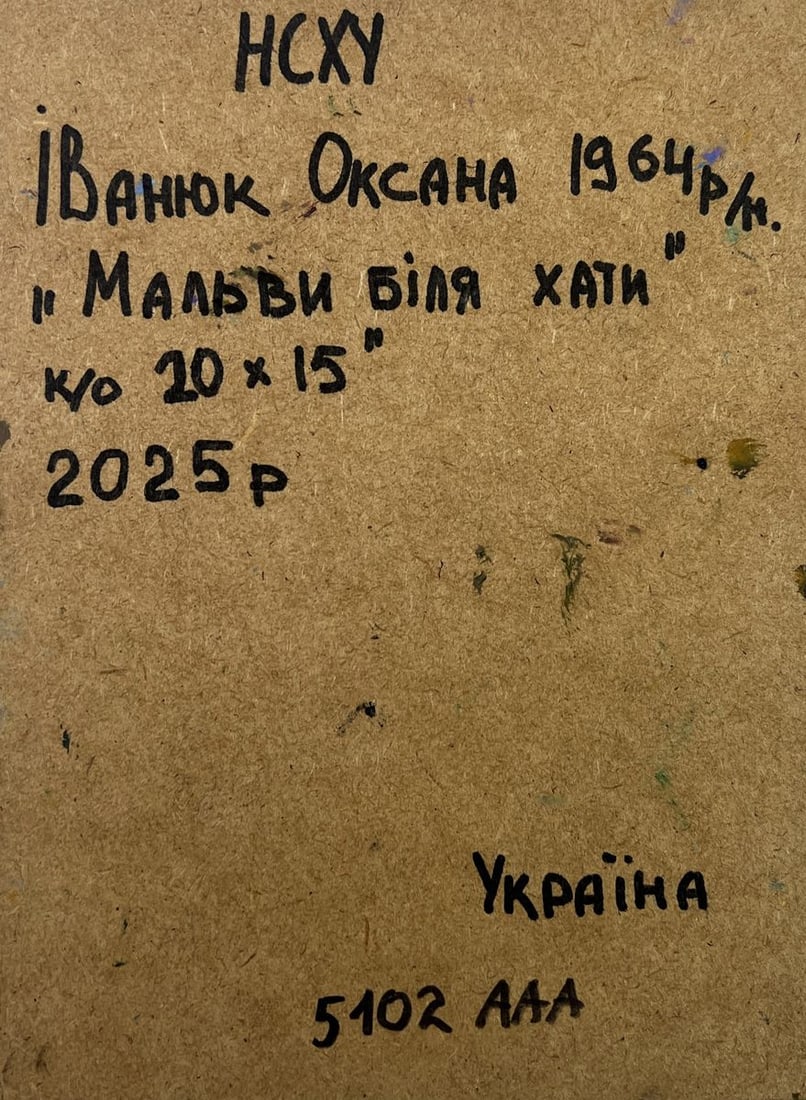 НСХУ
Іванюк Оксана 1964р/н.
"Мальви біля хати"
к/о 20 х 15"
2025р
Україна
5102 ААА